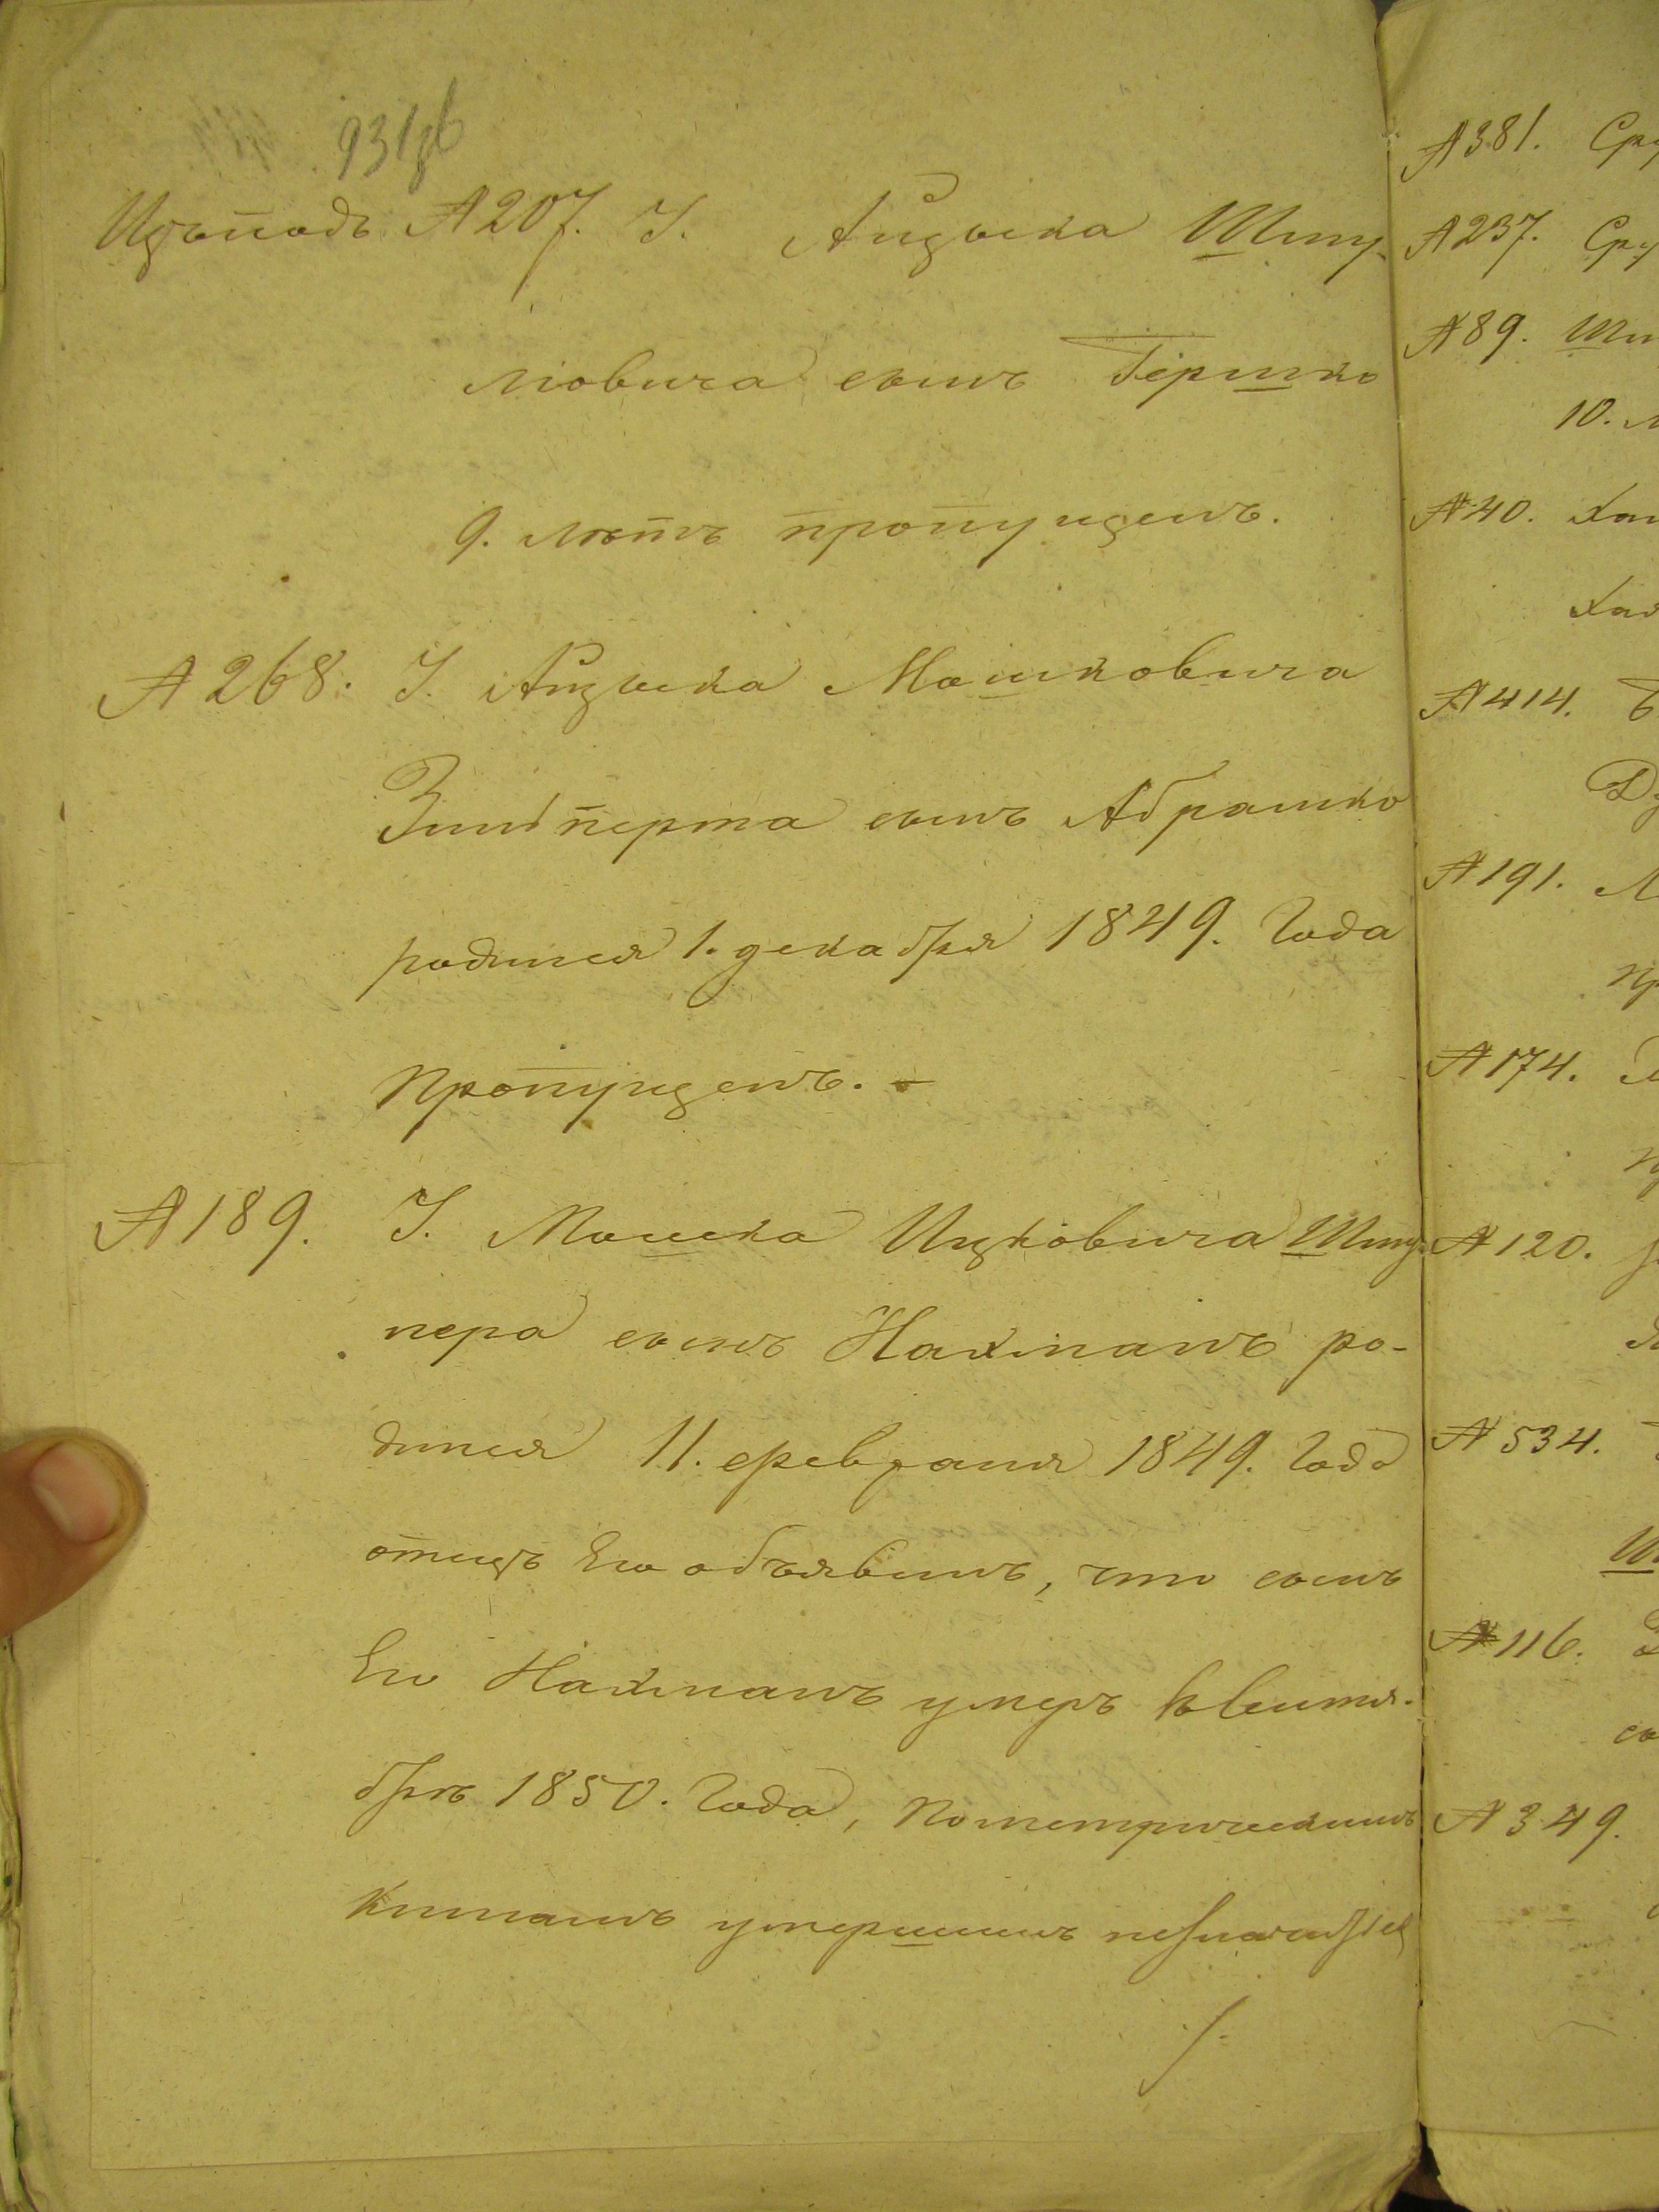 931об
Изъ подъ №207. У. Айзыка Шму-
ліовича сынъ Гершко
9. лѣтъ пропущенъ.
№268. У. Айзыка Мошковича
сынъ Абрашко
родился 1. декабря 1849. Года
Пропущенъ.
№189. У. Мошка Ицковича
пера сынъ Нахманъ ро-
дился 11. февраля 1849. Года
отецъ Его объявилъ, что сынъ
Его Нахманъ умеръ
брѣ 1850. Года, по метрическимъ
Книгамъ умершимъ не значится
№381. Сру
№237. Сру
№89.
10.
№40. Хаи
№414.
№191.
пр
№174.
№120.
№534.
№116.
№349.